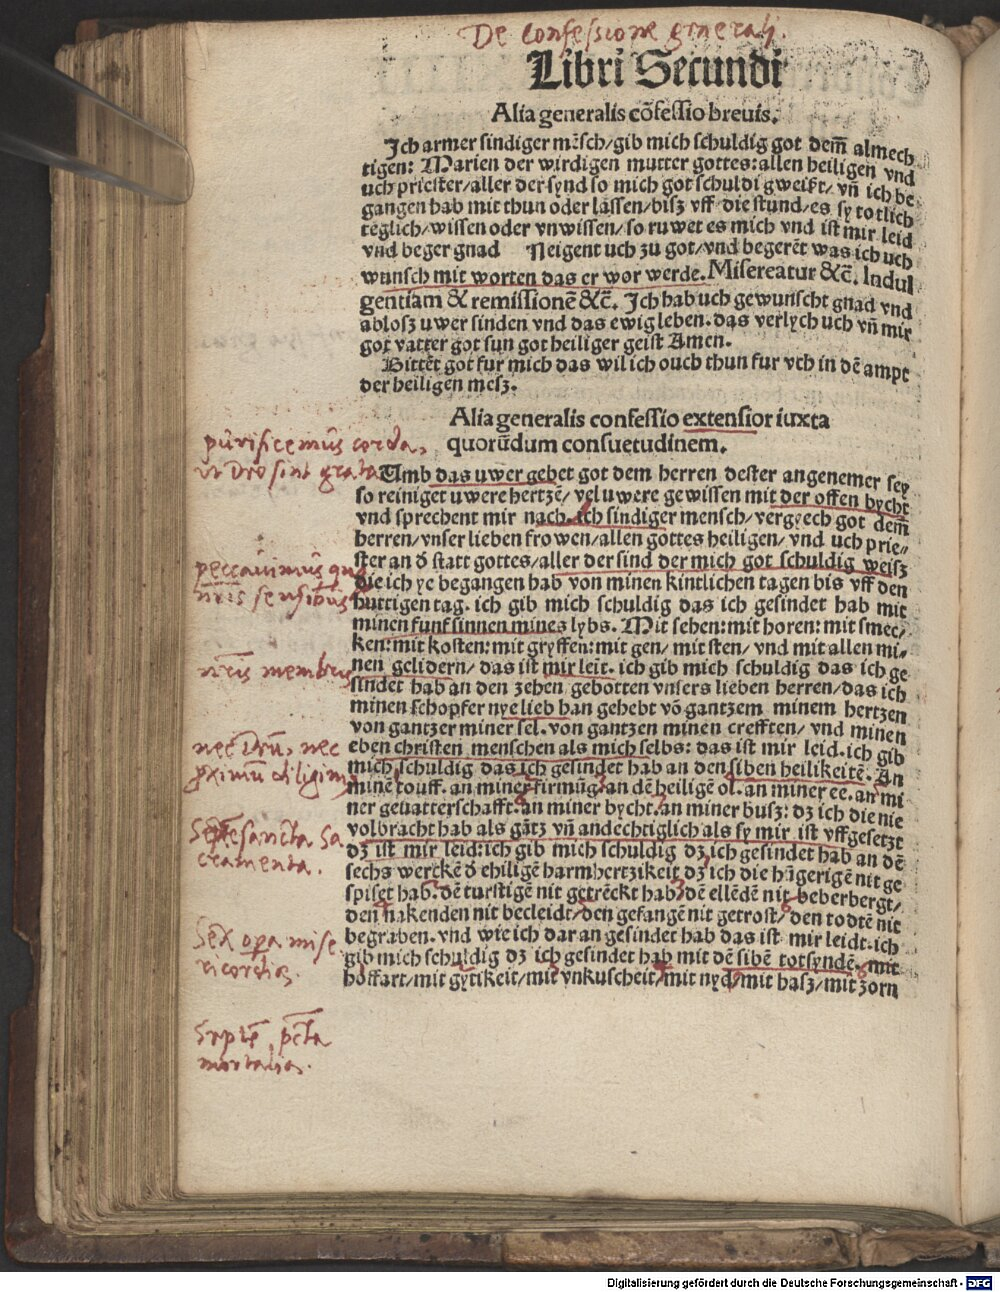 De confessione generali.
Libri Secundi
Alia generalis cõfessio brevis.
Ich armer sindiger mẽsch/gib mich schuldig got dem̃ almech
tigen: Marien der wirdigen mutter gottes: allen heiligen vnd
uch priester/aller der synd so mich got schuldi gweist/ vñ ich be
gangen hab mit thun oder lassen/bisz vff die stund/es sy totlich
teglich/wissen oder vnwissen/so ruwet es mich vnd ist mir leid
vnd beger gnad Neigent uch zu got/vnd begerẽt was ich uch
wunsch mit worten das er wor werde. Misereatur &c̃. Indul
gentiam & remissionẽ &c̃. Ich hab uch gewunscht gnad vnd
ablosz uwer sinden vnd das ewig leben. das verlych uch vñ mir
got vatter got sun got heiliger geist Amen.
Bittẽt got fur mich das wil ich ouch thun fur vch in dẽ ampt
der heiligen mesz.
Alia generalis confessio extensior iuxta
quorũdum consuetudinem.
purificemus corda,
ut Deo sint grata
Umb das uwer gebet got dem herren dester angenemer sey
so reiniget uwere hertzẽ/ vel uwere gewissen mit der offen bycht
vnd sprechent mir nach. ich sindiger mensch/vergyech got dem̃
herren/vnser lieben frowen/allen gottes heiligen/vnd uch prie-
ster an ð statt gottes/aller der sind der mich got schuldig weisz
die ich ye begangen hab von minen kintlichen tagen bis vff den
huttigen tag. ich gib mich schuldig das ich gesindet hab mit
minen funf sinnen mines lybs. Mit sehen: mit horen: mit smec/
ken: mit kosten: mit gryffen: mit gen/ mit sten/ vnd mit allen mi/
nen gelidern/ das ist mir leit. ich gib mich schuldig das ich ge
sindet hab an den zehen gebotten vnsers lieben herren/das ich
minen schopfer nye lieb han gehebt võ gantzem minem hertzen
von gantzer miner sel. von gantzen minen crefften/ vnd minen
eben christen menschen als mich selbs: das ist mir leid. ich gib
mich schuldig das ich gesindet hab an den siben heilikeitẽ. An
minẽ touff. an miner firmũg/an dẽ heiligẽ ol. an miner ee. an mi
ner gevatterschafft. an miner bycht. an miner busz: dz ich die nie
volbracht hab als gãtz vñ andechtiglich als sy mir ist vffgesetzt
dz ist mir leid: ich gib mich schuldig dz ich gesindet hab an dẽ
sechs werckẽ ð ehiligẽ harmhertzikeit dz ich die hũgerigẽ nit ge
spiset hab. dẽ turstigẽ nit getrẽckt hab/ dẽ ellẽdẽ nit beherbergt/
den nakenden nit becleidt/den gefangẽ nit getrost/ den todtẽ nit
begraben. vnd wie ich dar an gesindet hab das ist mir leidt. ich
gib mich schuldig dz ich gesindet hab mit dẽ sibẽ totsyndẽ. mit
hoffart/mit gytikeit/mit vnkuscheit/mit nyd/mit hasz/mit zorn
peccavimus
nr̃is sensibus
nr̃is membris
nec Deũ, nec
proximũ diligimus
Septẽ sancta Sa
cramenta.
Sex opera mise
ricordiæ.
Septẽ pc̃ta
mortalia.
Digitalisierung gefördert durch die Deutsche Forschungsgemeinschaft - DFG